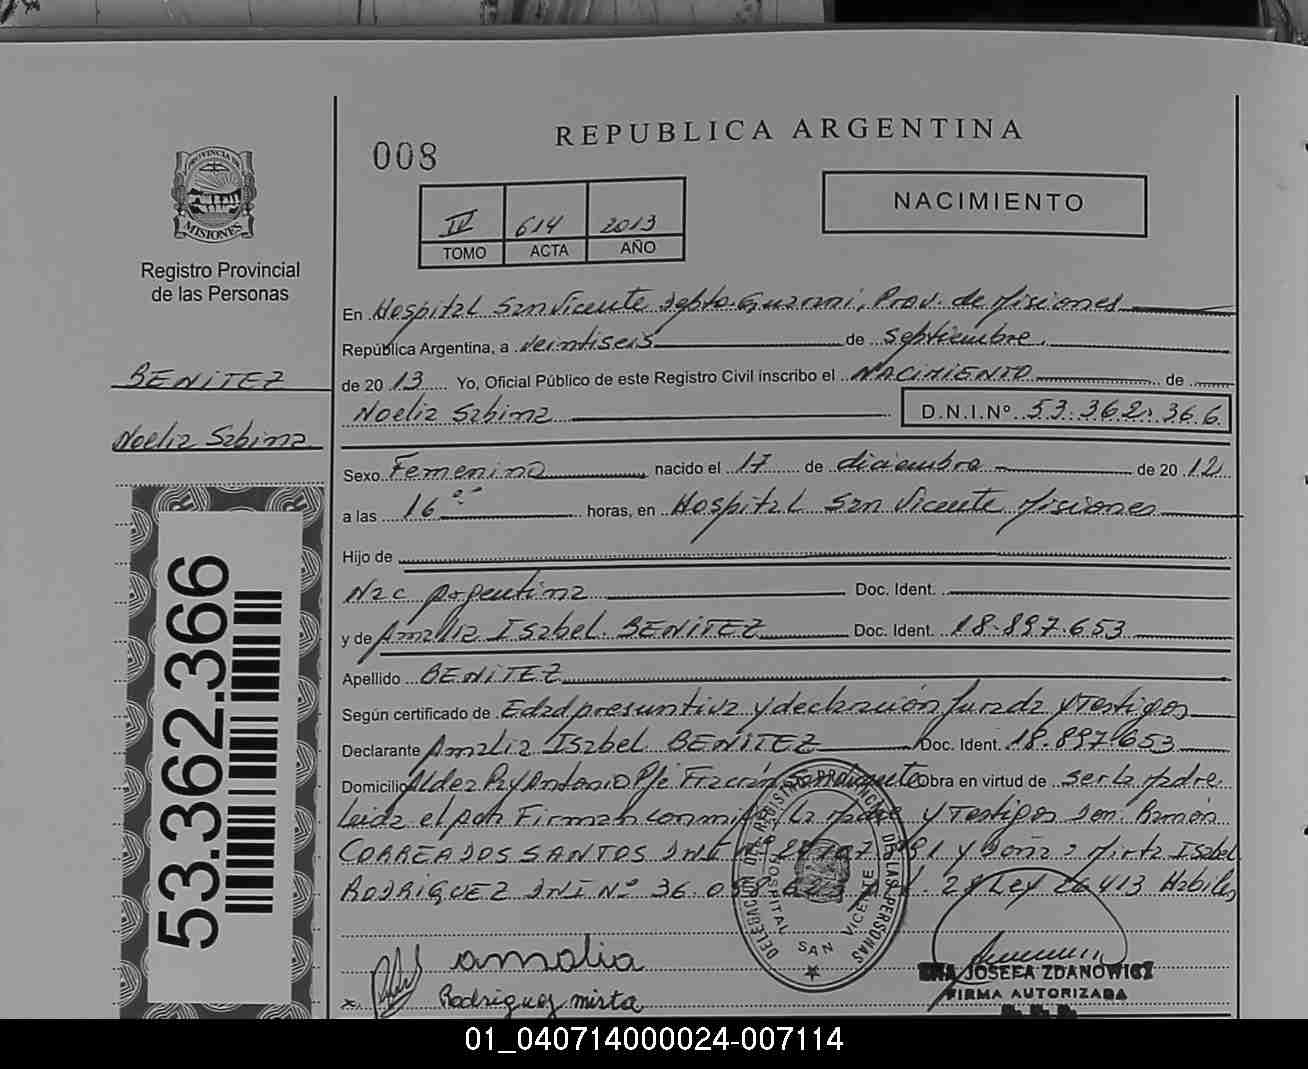 008
REPUBLICA ARGENTINA
PROVINCIA DE
MISIONES
Registro Provincial
de las Personas
NACIMIENTO
IV 614 2013
TOMO ACTA AÑO
En Hospital San Vicente Depto. Guarani, Prov. de Misiones
República Argentina, a veintiseis de septiembre
BENITEZ
de 2013 Yo, Oficial Público de este Registro Civil inscribo el NACIMIENTO de
Noelia Sabina
Noelia Sabina D.N.I.Nº 53.362.366
Sexo Femenino nacido el 17 de diciembre de 2012
a las 16 horas, en Hospital San Vicente Misiones
Hijo de
Nac Argentina Doc. Ident.
y de Amalia Isabel BENITEZ Doc. Ident. 18.897.653
Apellido BENITEZ
Según certificado de Edad presuntiva y declaración jurada y Testigos
Declarante Amalia Isabel BENITEZ Doc. Ident. 18.897.653
Domicilio Aldea Antonio Pje Fracrán San Vicente Obra en virtud de ser la madre
Leida el acta Firman conmigo La madre y Testigos Don: Ramón
CORREA DOS SANTOS DNI Nº y Doña: Mirta Isabel
RODRIGUEZ DNI Nº 36.0 Art. 28 Ley 26413 Habiles
53.362.366
DELEGACION DEL REGISTRO PROVINCIAL DE LAS PERSONAS
HOSPITAL SAN VICENTE
amalia
Rodriguez mirta
JOSEFA ZDANOWICZ
FIRMA AUTORIZADA
01_040714000024-007114